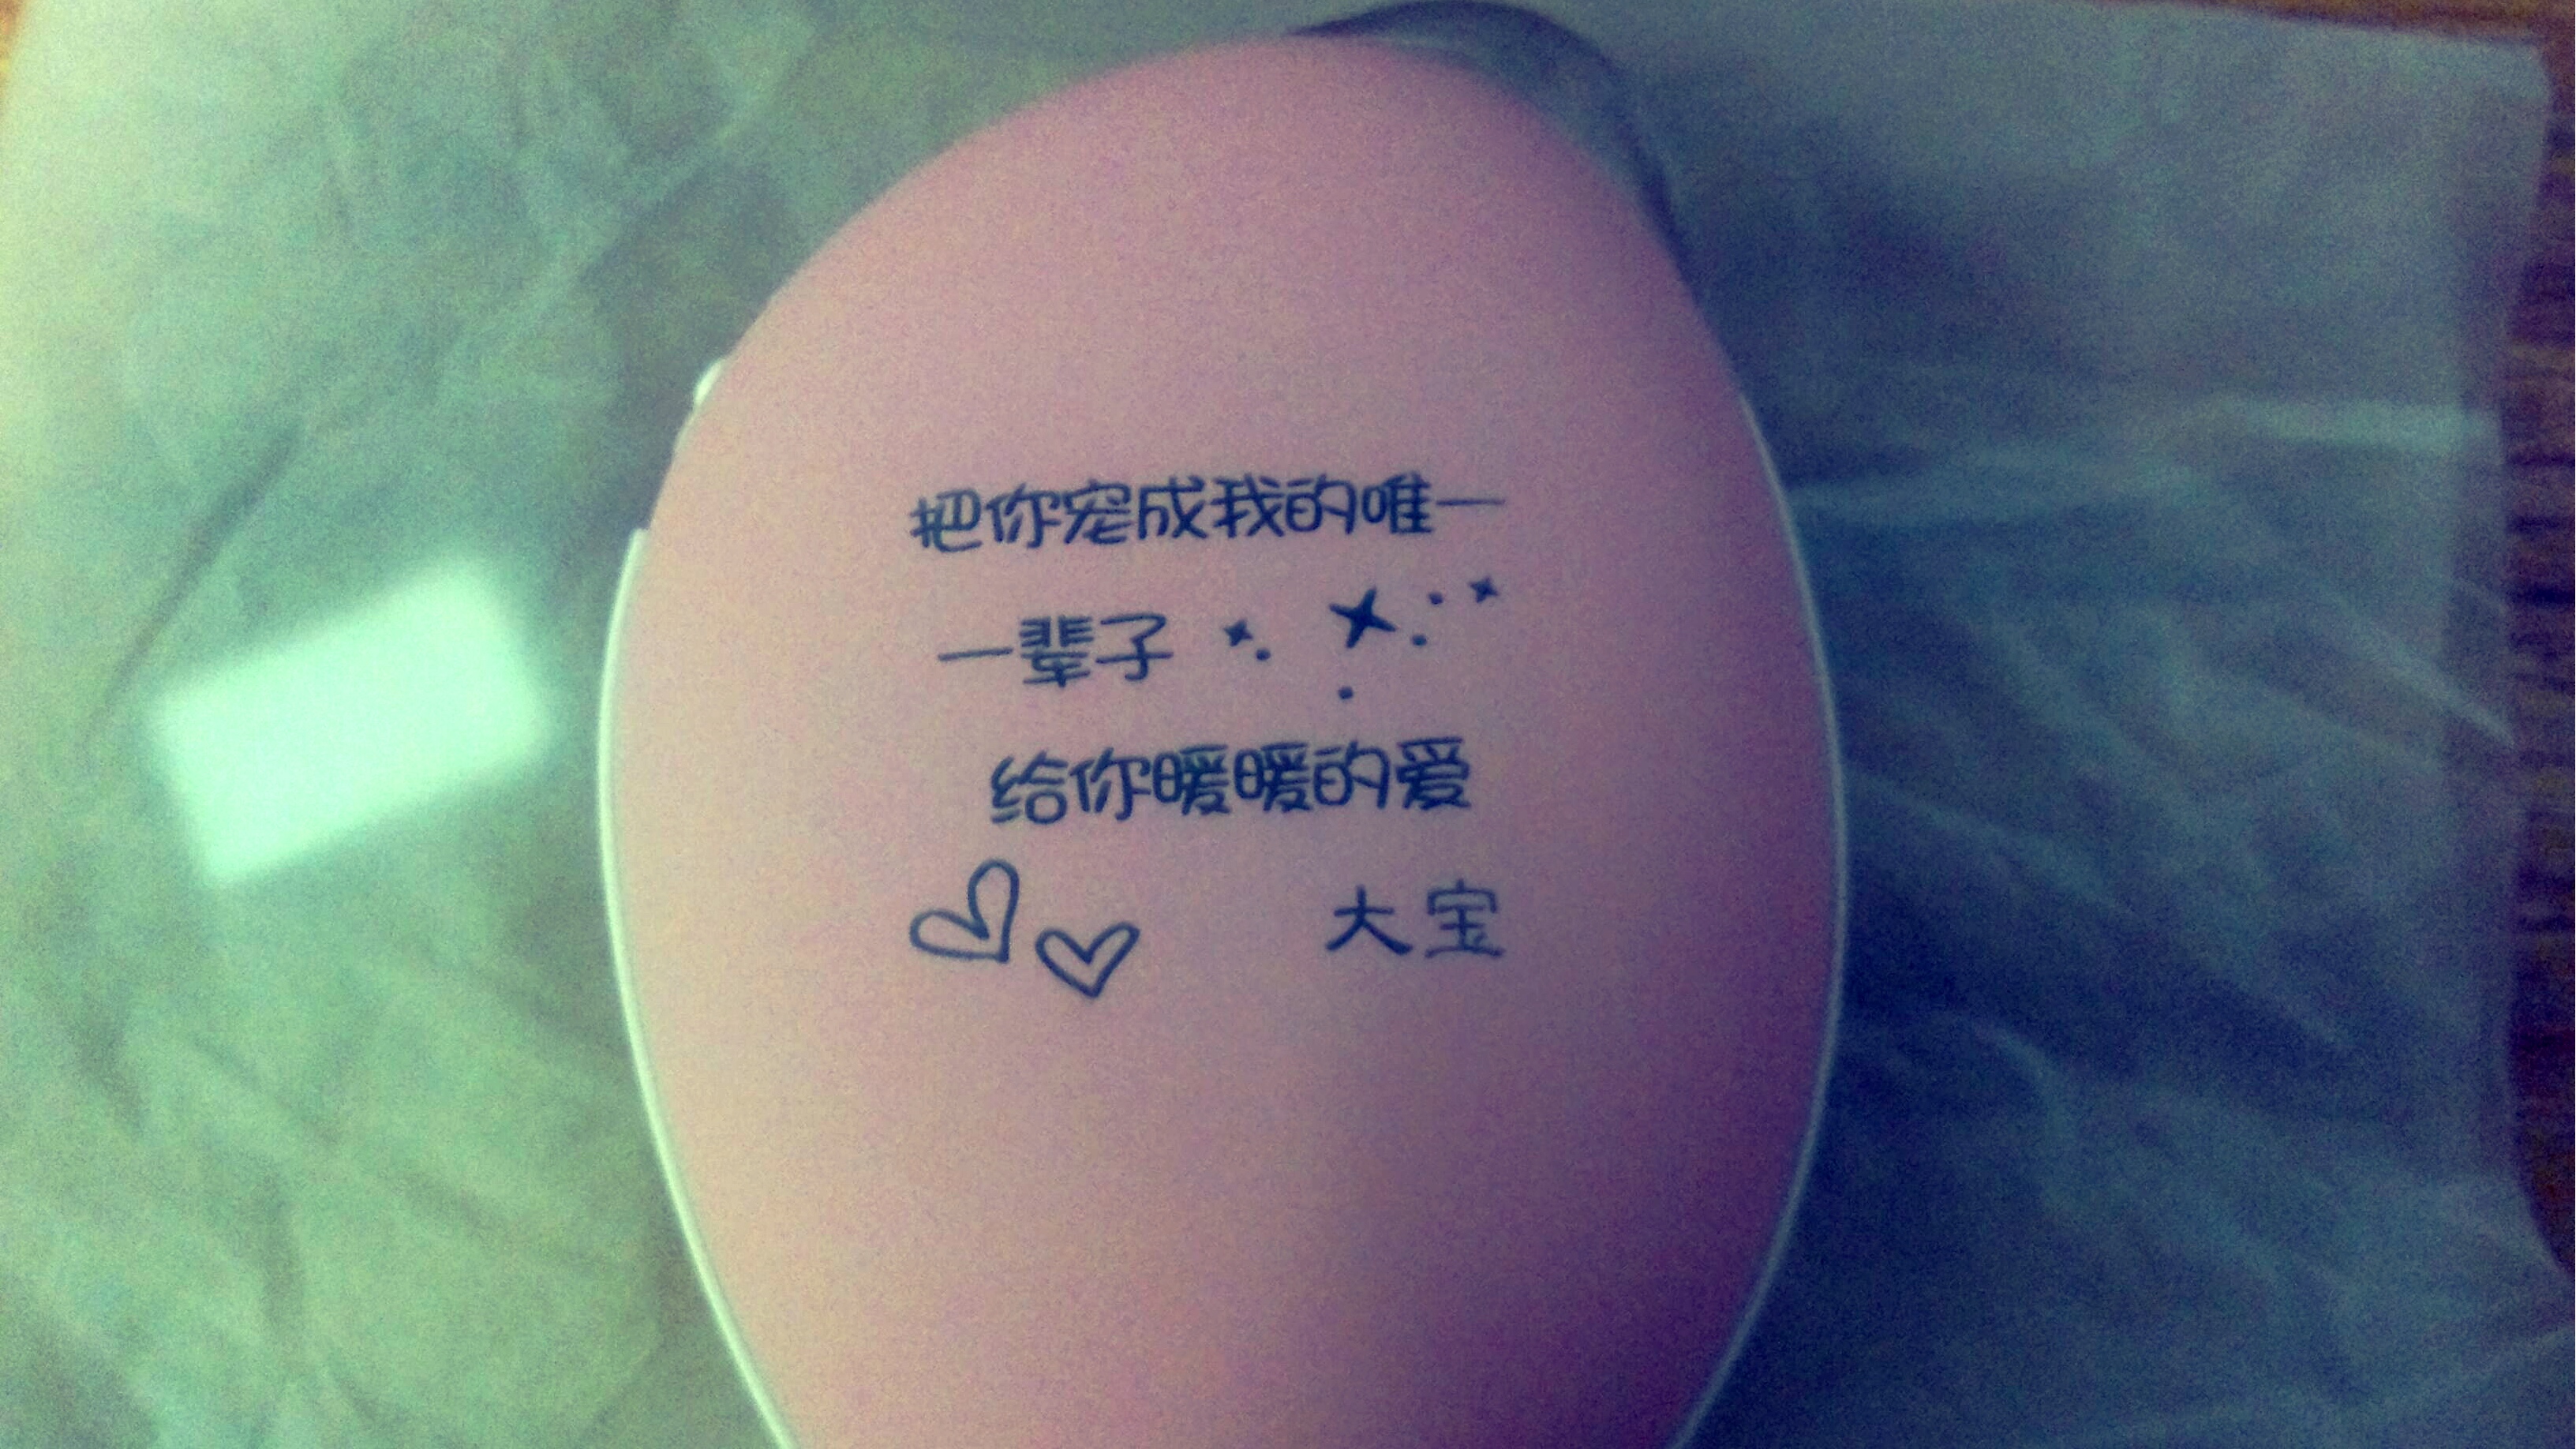 把你宠成我的唯一
一辈子
给你暖暖的爱
大宝